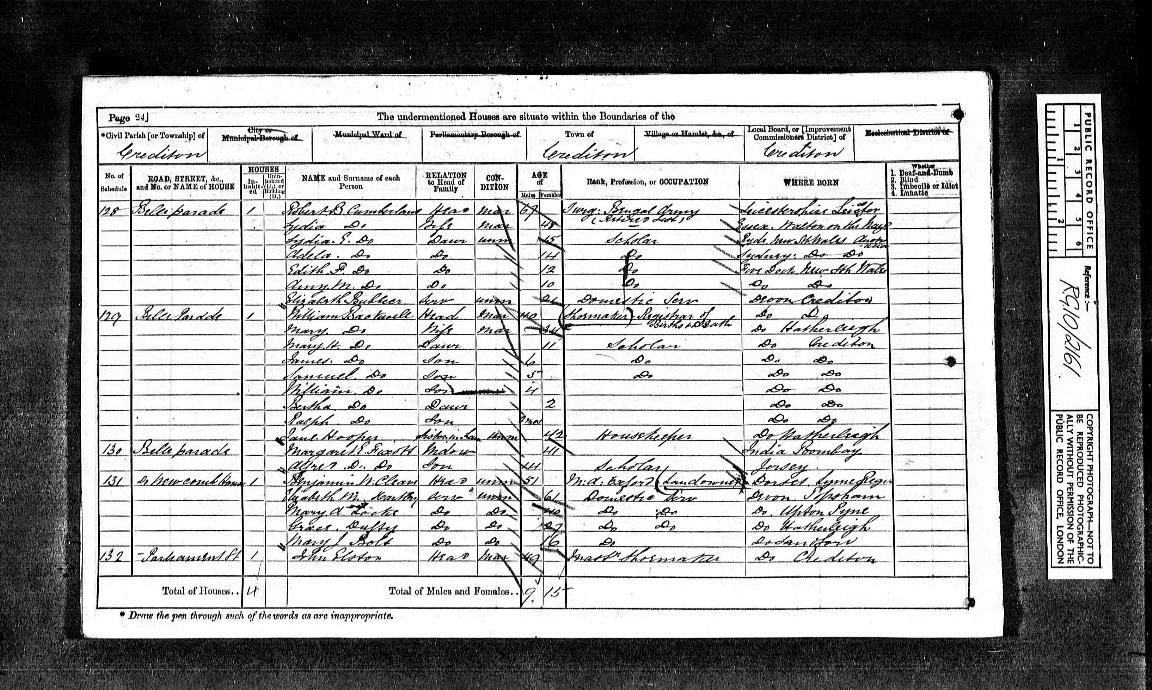 Page 24]
The undermentioned Houses are situate within the Boundaries of the
*Civil Parish [or Township] of
City or Municipal Borough of
Municipal Ward of
Parliamentary Borough of
Town of
Village or Hamlet, &c., of
Local Board, or [Improvement Commissioners District] of
Ecclesiastical District of
Crediton Crediton Crediton
No. of Schedule
ROAD, STREET, &c., and No. or NAME of HOUSE
HOUSES
Inhabited
NAME and Surname of each Person
RELATION to Head of Family
CONDITION
AGE of
Males Females
Rank, Profession, or OCCUPATION
WHERE BORN
Whether
1. Deaf-and-Dumb
2. Blind
3. Imbecile or Idiot
4. Lunatic
128 Belle parade 1 Robert B. Cumberland Head Mar 67 Surg: Bengal Army Leicestershire
(Retired List)
Lydia Do Wife Mar 48 Essex. Walton on the Naze
Lydia E. Do Daur unm 15 Scholar Ryde New Sth Wales
Adela. Do Do 14 Do Sydney. Do Do
Edith F. Do Do 12 Do Five Dock New Sth Wales
Amy M. Do Do 10 Do Do Do
Elizabeth Serv unm 26 Domestic Serv Devon Crediton
129 Belle Parade 1 William Head Mar 40 (Shoemaker) Registrar of Births & Death Do Do
Mary. Do Wife Mar Do Hatherleigh
Mary H. Do Daur 11 Scholar Do Crediton
James. Do Son 6 Do Do Do
Samuel. Do Son 5 Do Do Do
William. Do Son 4 Do Do
Bertha. Do Daur 2 Do Do
Ralph Do Son Do Do
Jane Hooper Sister in Law unm 42 Housekeeper Do Hatherleigh
130 Belle parade Margaret E. Widow 41 India Bombay
Alfred D. Do Son 14 Scholar Jersey
131 Newcomb House 1 Benjamin W. Head unm 51 M.D. Oxford (Landowner) Dorset Lyme Regis
Elizabeth M. Serv unm 61 Domestic Serv Devon Topsham
Mary A. Locke Do Do Do Do Do. Upton Pyne
Grace Duffy Do Do 27 Do Do Do Hatherleigh
Mary J. Do Do 16 Do Do Sandford
132 Parliament St 1 John Elston Head Mar 49 Mastr Shoemaker Do Crediton
Total of Houses.. 4 Total of Males and Females.. 9 15
* Draw the pen through such of the words as are inappropriate.
PUBLIC RECORD OFFICE
1 2 3 4 5 6
Reference:-
RG10/2161
COPYRIGHT PHOTOGRAPH—NOT TO BE REPRODUCED PHOTOGRAPHICALLY WITHOUT PERMISSION OF THE PUBLIC RECORD OFFICE, LONDON